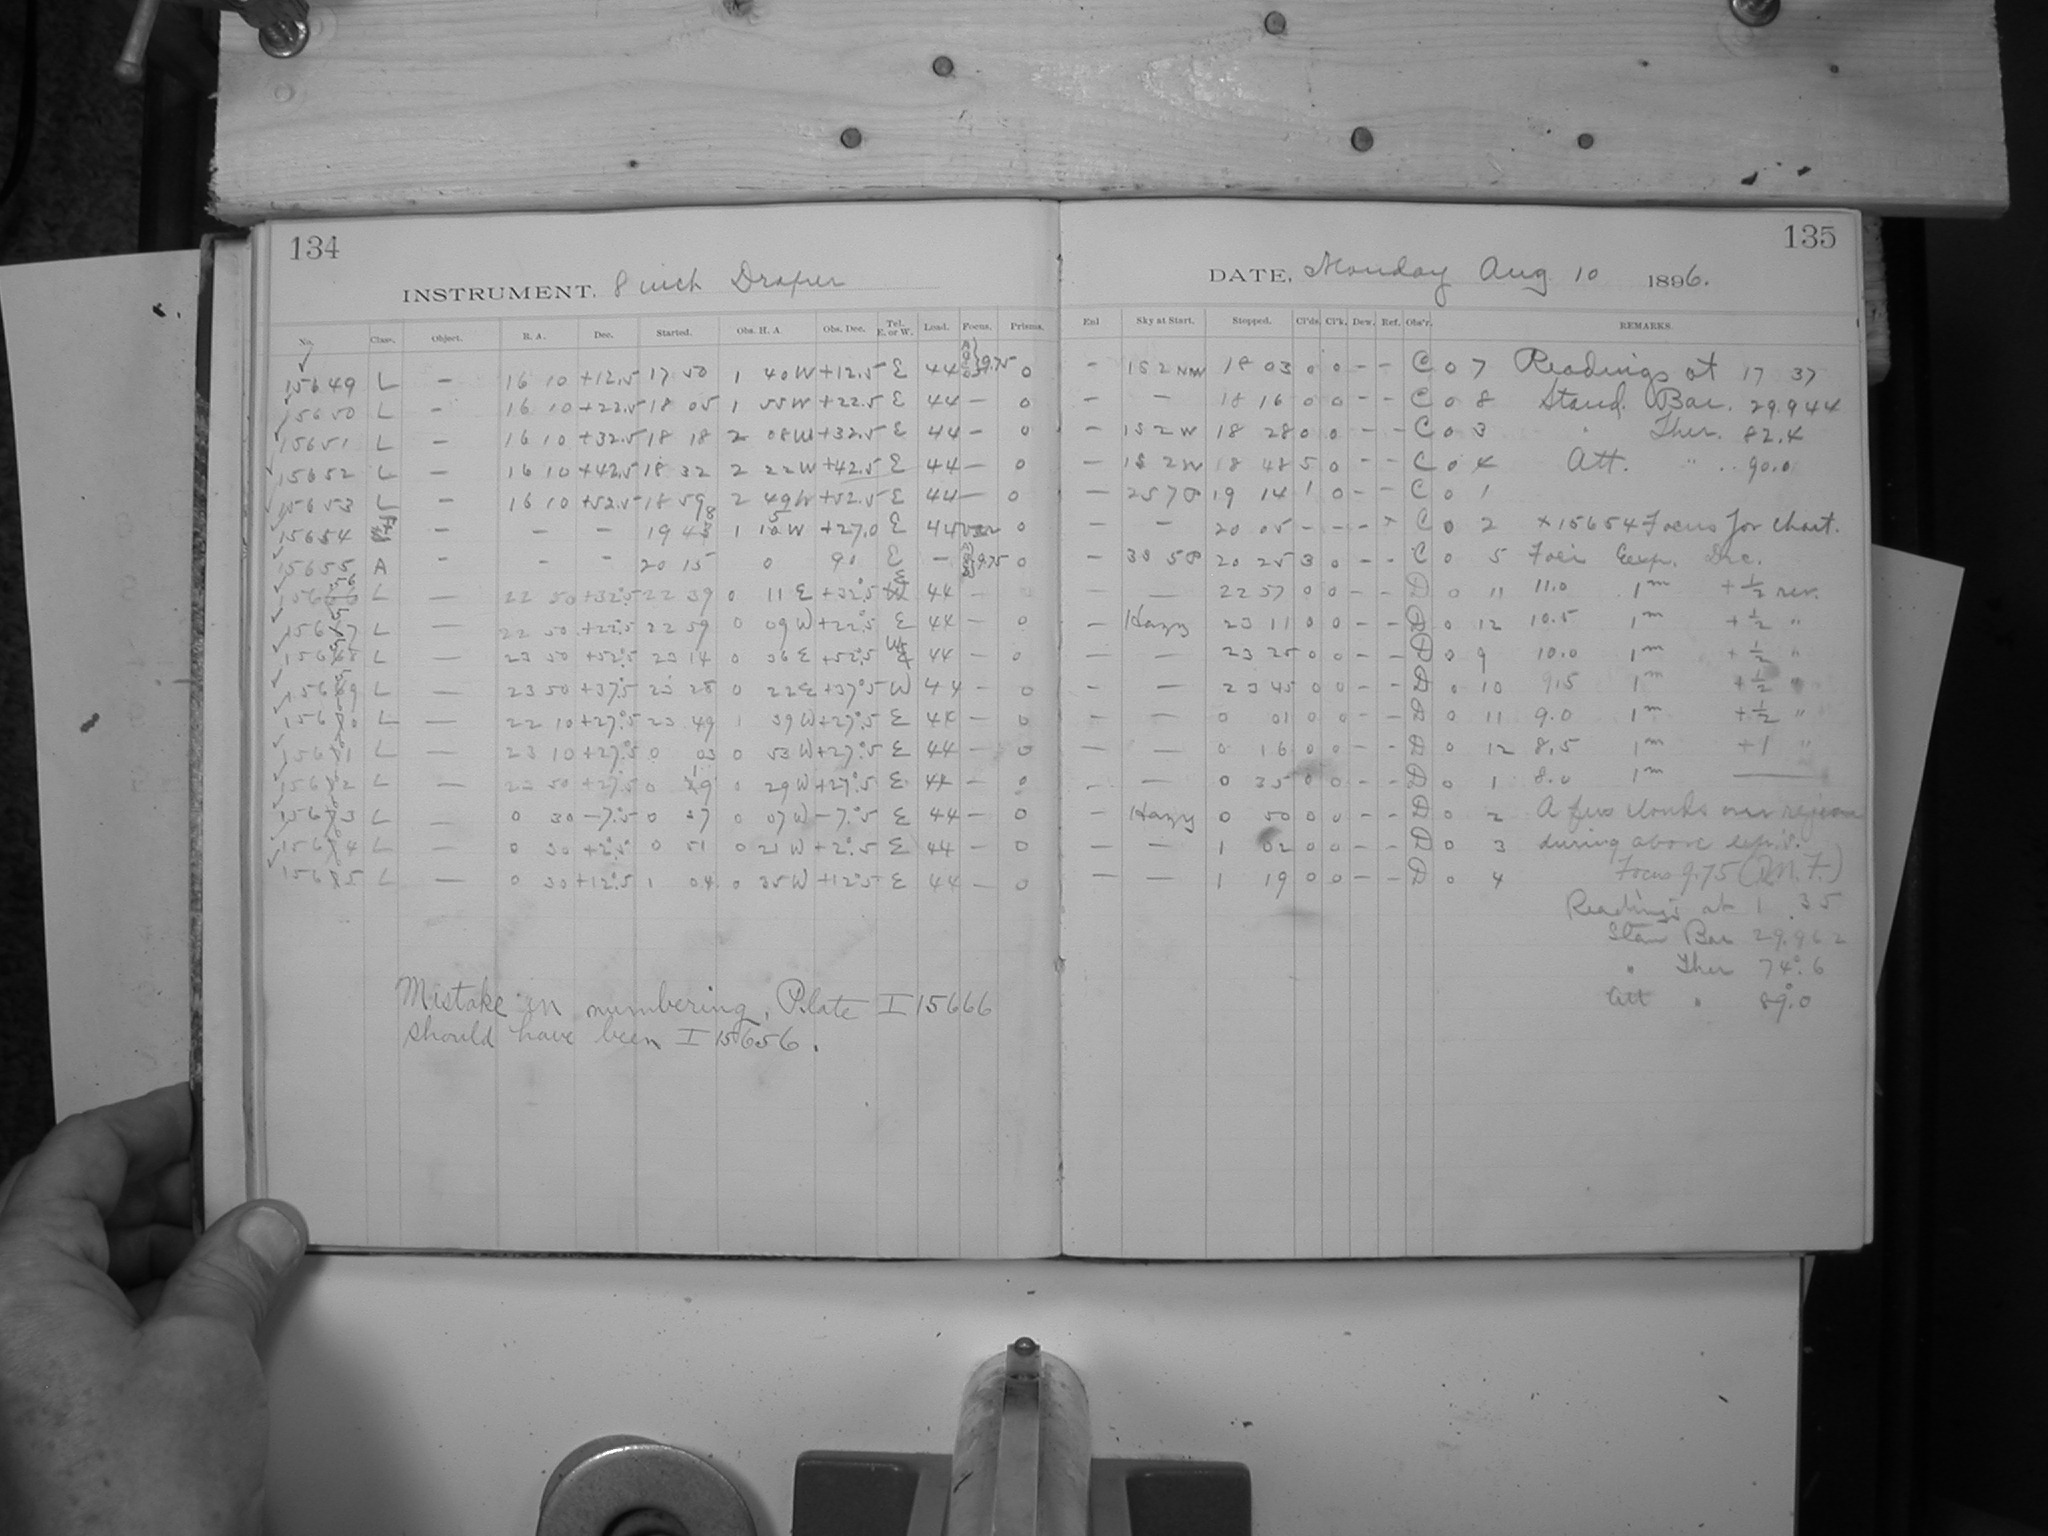 134
INSTRUMENT, 8 inch Draper
No. Class. Object. R. A. Dec. Started. Obs. H. A Obs. Dec. Tel. E. or W. Load. Focus. Prisms.
15649 L – 16 10 +12.5 17 50 1 40W +12.5 E 44 9.75 0
15650 L – 16 10 +22.5 18 05 1 55W +22.5 E 44 – 0
15651 L – 16 10 +32.5 18 18 2 08W +32.5 E 44 – 0
15652 L – 16 10 +42.5 18 32 2 22W +42.5 E 44 – 0
15653 L – 16 10 +52.5 18 59 2 49W +52.5 E 44 – 0
15654 – – – 19 1 W +27.0 E 0
15655 A – – 20 15 0 90 E – 9.75 0
L – 22 50 +32.5 22 39 0 11 E +32.5 44 –
L – 22 50 +22.5 22 59 0 09W +22.5 E 44 – 0
L – 23 50 +52.5 23 14 0 36 E +52.5 W 44 – 0
L – 23 50 +37.5 23 28 0 22E +37.5 W 44 – 0
L – 22 10 +27.5 23 49 1 39W +27.5 E 44 – 0
L – 23 10 +27.5 0 03 0 53W +27.5 E 44 – 0
L – 22 50 +27.5 0 19 0 29W +27.5 E 44 – 0
L – 0 30 –7.5 0 37 0 07W –7.5 E 44 – 0
L – 0 30 +2.5 0 51 0 21W +2.5 E 44 – 0
L – 0 30 +12.5 1 04 0 35W +12.5 E 44 – 0
Mistake in numbering, Plate I 15666
should have been I 15656.
135
DATE, Monday Aug 10 1896.
Enl Sky at Start. Stopped. Cl'ds Cl'k. Dew. Ref. Obs'r. REMARKS.
– 1S 2 NW 18 03 0 0 – – C 0 7 Readings at 17 37
– – 18 16 0 0 – – C 0 8 Stand. Bar. 29.944
– 1S 2W 18 28 0 0 – – C 0 3 " Ther. 82.4
– 1S 2W 18 48 5 0 – – C 0 4 Att. " 90.0
– 19 14 1 0 – – C 0 1
– – 20 05 – – – × C 0 2 ×15654 Focus for Chart.
– 20 25 3 0 – – C 0 5 Foci Exp. Dec.
– – 22 57 0 0 – – D 0 11 11.0 1m +½ rev.
– Hazy 23 11 0 0 – – D 0 12 10.5 1m +½ "
– – 23 25 0 0 – – D 0 9 10.0 1m +½ "
– – 23 45 0 0 – – D 0 10 9.5 1m +½ "
– – 0 01 0 0 – – D 0 11 9.0 1m +½ "
– – 0 16 0 0 – – D 0 12 8.5 1m +1 "
– – 0 35 0 0 – – D 0 1 8.0 1m –
– Hazy 0 50 0 0 – – D 0 2 A few clouds over region
– – 1 02 0 0 – – D 0 3 during above exp's.
– – 1 19 0 0 – – D 0 4 Focus 9.75
Readings at 1 35
Stan Bar 29.962
" Ther 74.6
Att " 89.0